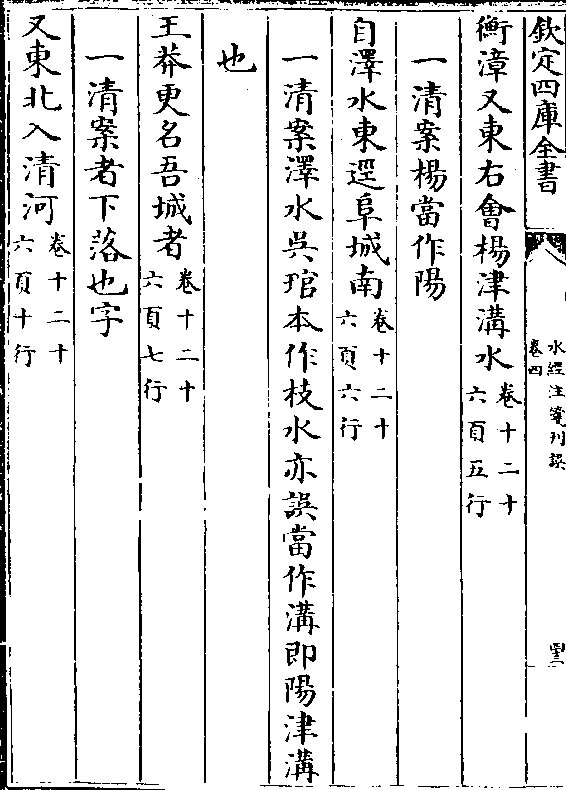 欽定四庫全書
水經注箋刊誤
卷四
衡漳又東右會楊津溝水卷十二十
六頁五行
一清案楊當作陽
自澤水東逕阜城南卷十二十
六頁六行
一清案澤水吳琯本作枝水亦誤當作溝即陽津溝
也
王莽更名吾城者卷十二十
六頁七行
一清案者下落也字
又東北入清河卷十二十
六頁十行